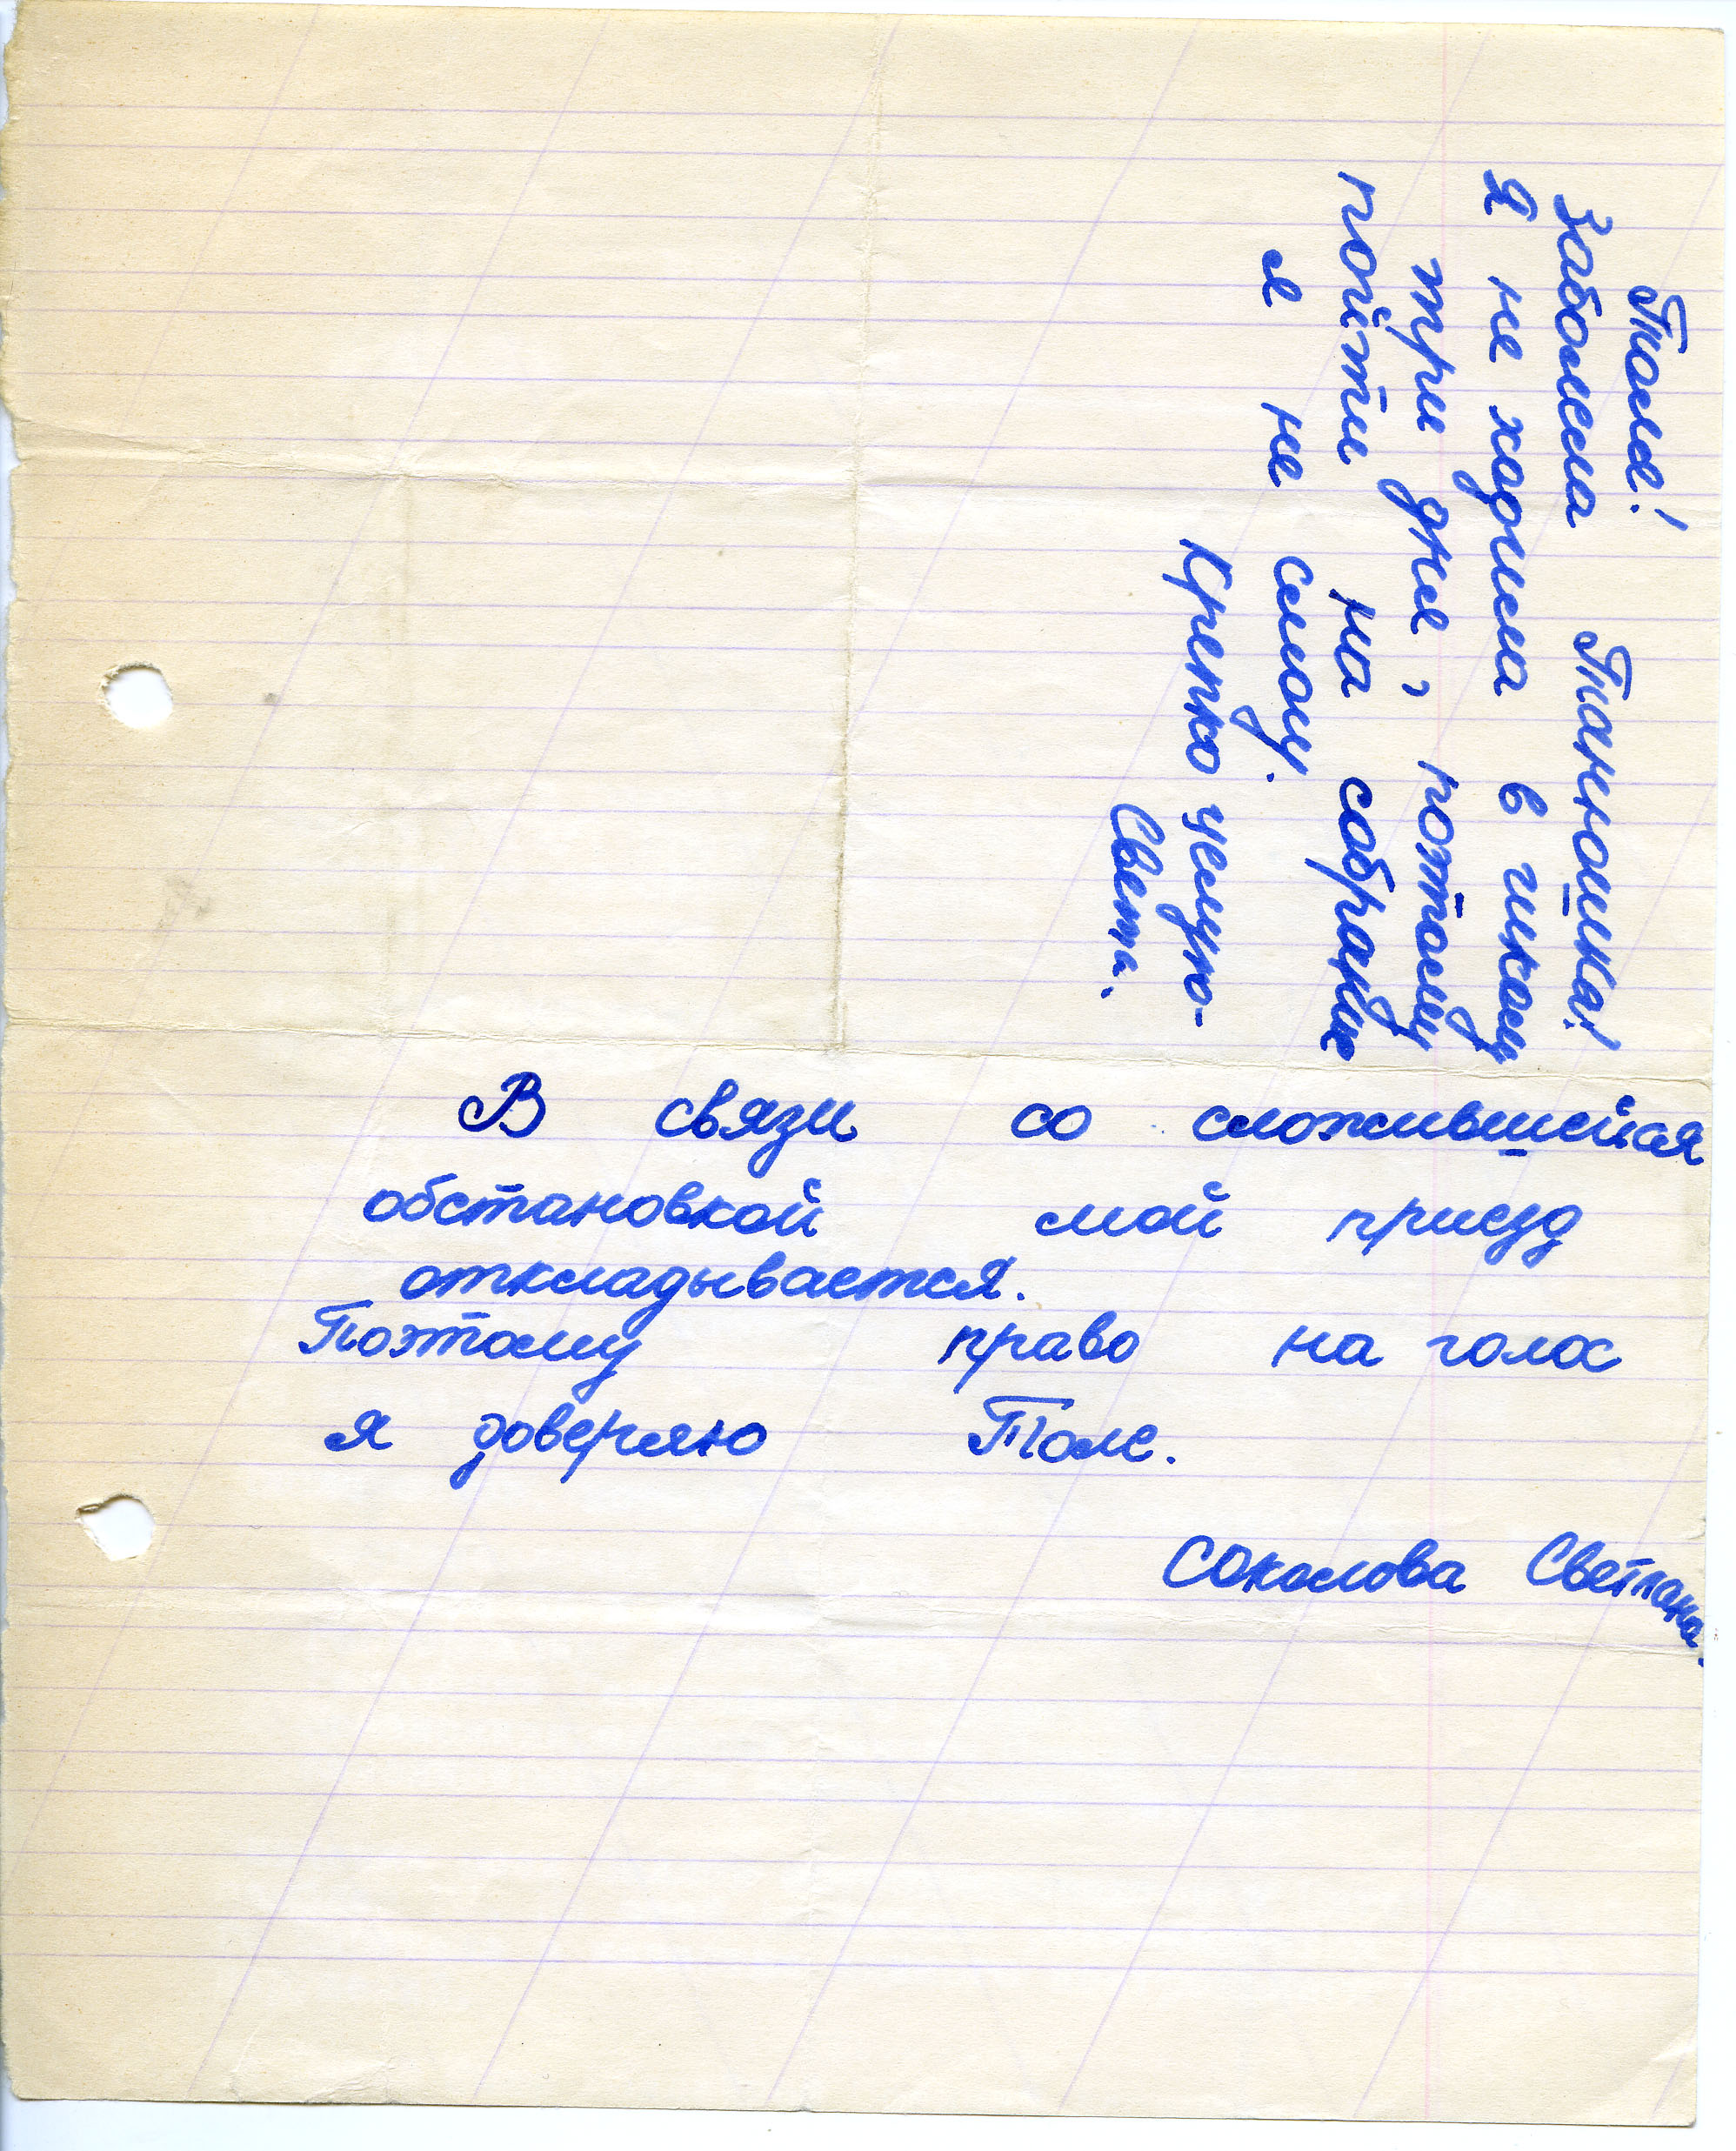 Толя!
Заболела Танюшка!
Я не ходила в школу
три дня, поэтому
пойти на собрание
я не смогу.
Крепко целую-
Света.
В связи со сложившейся
обстановкой мой приезд
откладывается.
Поэтому право на голос
я доверяю Толе.
Соколова Светлана.